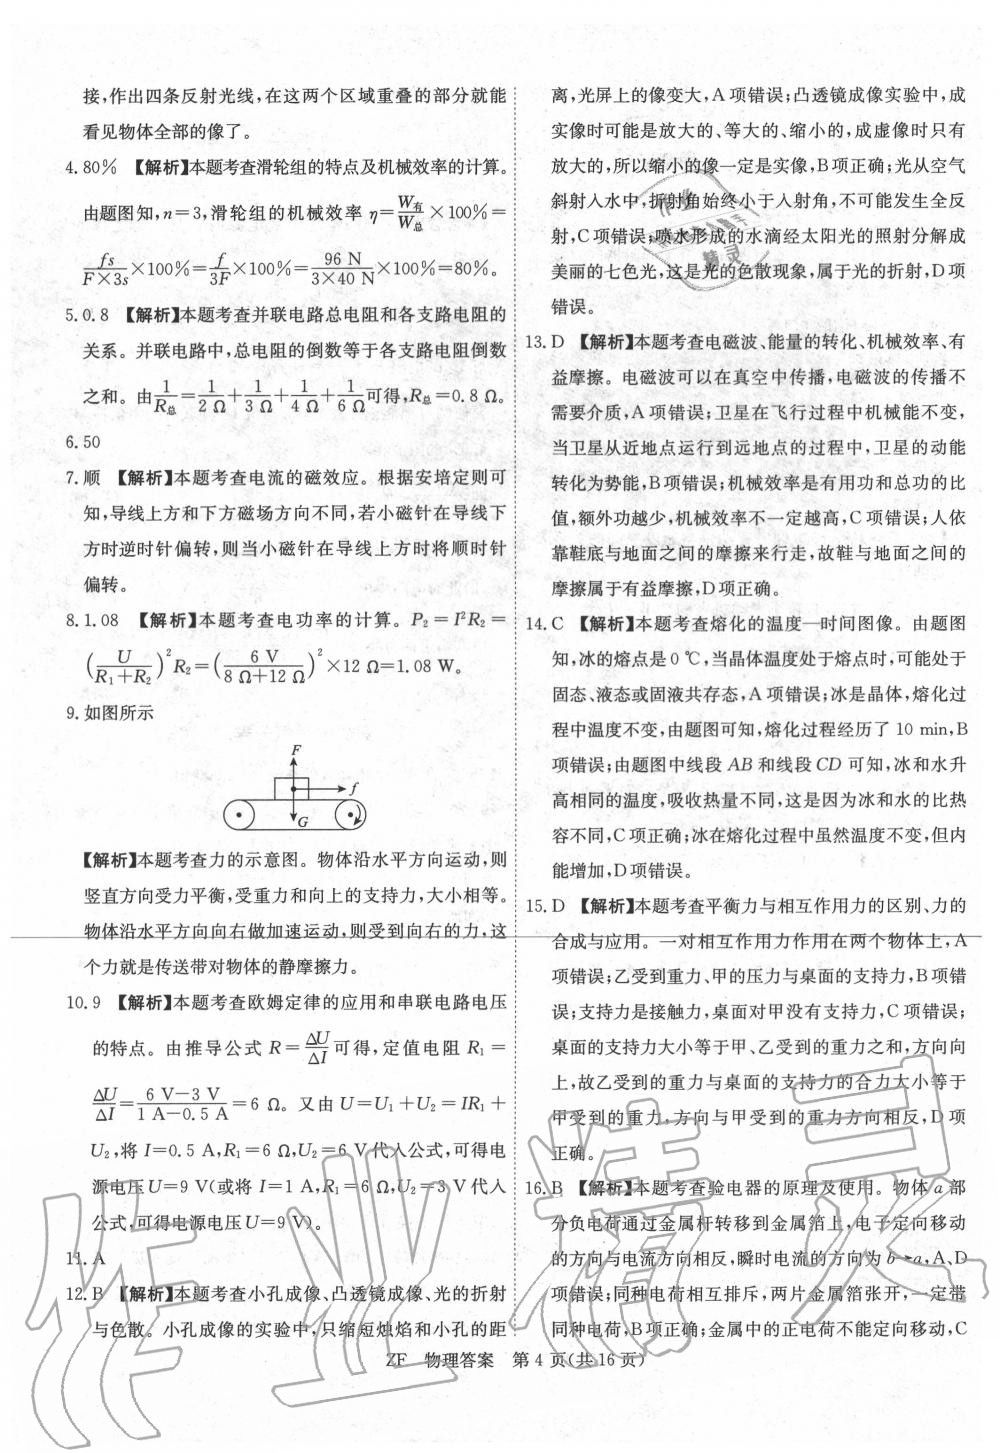 接,作出四条反射光线,在这两个区域重叠的部分就能
看见物体全部的像了。
4.80% 【解析】本题考查滑轮组的特点及机械效率的计算。
由题图知,n=3,滑轮组的机械效率 η=W有/W总×100%=
fs/F×3s×100%=f/3F×100%=96 N/3×40 N×100%=80%。
5.0.8 【解析】本题考查并联电路总电阻和各支路电阻的
关系。并联电路中,总电阻的倒数等于各支路电阻倒数
之和。由1/R总=1/2 Ω+1/3 Ω+1/4 Ω+1/6 Ω可得,R总=0.8 Ω。
6.50
7.顺 【解析】本题考查电流的磁效应。根据安培定则可
知,导线上方和下方磁场方向不同,若小磁针在导线下
方时逆时针偏转,则当小磁针在导线上方时将顺时针
偏转。
8.1.08 【解析】本题考查电功率的计算。P₂=I²R₂=
(U/R₁+R₂)²R₂=(6 V/8 Ω+12 Ω)²×12 Ω=1.08 W。
9.如图所示
F
f
G
【解析】本题考查力的示意图。物体沿水平方向运动,则
竖直方向受力平衡,受重力和向上的支持力,大小相等。
物体沿水平方向向右做加速运动,则受到向右的力,这
个力就是传送带对物体的静摩擦力。
10.9 【解析】本题考查欧姆定律的应用和串联电路电压
的特点。由推导公式 R=ΔU/ΔI可得,定值电阻 R₁=
ΔU/ΔI=6 V−3 V/1 A−0.5 A=6 Ω。又由 U=U₁+U₂=IR₁+
U₂,将 I=0.5 A,R₁=6 Ω,U₂=6 V代入公式,可得电
源电压U=9 V(或将 I=1 A,R₁=6 Ω,U₂=3 V代入
公式,可得电源电压U=9 V)。
11.A
12.B 【解析】本题考查小孔成像、凸透镜成像、光的折射
与色散。小孔成像的实验中,只缩短烛焰和小孔的距
离,光屏上的像变大,A项错误;凸透镜成像实验中,成
实像时可能是放大的、等大的、缩小的,成虚像时只有
放大的,所以缩小的像一定是实像,B项正确;光从空气
斜射入水中,折射角始终小于入射角,不可能发生全反
射,C项错误;喷水形成的水滴经太阳光的照射分解成
美丽的七色光,这是光的色散现象,属于光的折射,D项
错误。
13.D 【解析】本题考查电磁波、能量的转化、机械效率、有
益摩擦。电磁波可以在真空中传播,电磁波的传播不
需要介质,A项错误;卫星在飞行过程中机械能不变,
当卫星从近地点运行到远地点的过程中,卫星的动能
转化为势能,B项错误;机械效率是有用功和总功的比
值,额外功越少,机械效率不一定越高,C项错误;人依
靠鞋底与地面之间的摩擦来行走,故鞋与地面之间的
摩擦属于有益摩擦,D项正确。
14.C 【解析】本题考查熔化的温度—时间图像。由题图
知,冰的熔点是0 ℃,当晶体温度处于熔点时,可能处于
固态、液态或固液共存态,A项错误;冰是晶体,熔化过
程中温度不变,由题图可知,熔化过程经历了 10 min,B
项错误;由题图中线段 AB 和线段 CD 可知,冰和水升
高相同的温度,吸收热量不同,这是因为冰和水的比热
容不同,C项正确;冰在熔化过程中虽然温度不变,但内
能增加,D项错误。
15.D 【解析】本题考查平衡力与相互作用力的区别、力的
合成与应用。一对相互作用力作用在两个物体上,A
项错误;乙受到重力、甲的压力与桌面的支持力,B项错
误;支持力是接触力,桌面对甲没有支持力,C项错误;
桌面的支持力大小等于甲、乙受到的重力之和,方向向
上,故乙受到的重力与桌面的支持力的合力大小等于
甲受到的重力,方向与甲受到的重力方向相反,D项
正确。
16.B 【解析】本题考查验电器的原理及使用。物体a部
分负电荷通过金属杆转移到金属箔上,电子定向移动
的方向与电流方向相反,瞬时电流的方向为 b→a,A、D
项错误;同种电荷相互排斥,两片金属箔张开,一定带
同种电荷,B项正确;金属中的正电荷不能定向移动,C
ZF 物理答案 第 4 页(共 16 页)
作业精灵